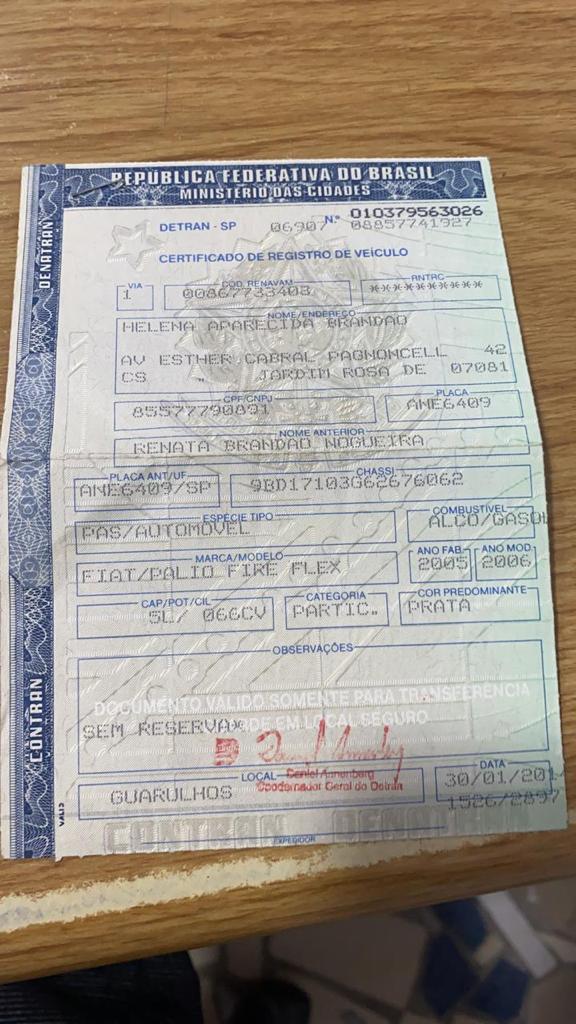 REPÚBLICA FEDERATIVA DO BRASIL
MINISTÉRIO DAS CIDADES
DENATRAN
DETRAN - SP 06907 N.º 010379563026
08857741927
CERTIFICADO DE REGISTRO DE VEÍCULO
VIA CÓD. RENAVAM RNTRC
1 00867733403 **************
NOME/ENDEREÇO
HELENA APARECIDA BRANDAO
AV ESTHER CABRAL PAGNONCELL 42
CS JARDIM ROSA DE 07081
CPF/CNPJ PLACA
85577790891 ANE6409
NOME ANTERIOR
RENATA BRANDAO NOGUEIRA
PLACA ANT/UF CHASSI
ANE6409/SP 9BD17103G62676062
ESPÉCIE TIPO COMBUSTÍVEL
PAS/AUTOMOVEL ALCO/GASOL
MARCA/MODELO ANO FAB. ANO MOD.
FIAT/PALIO FIRE FLEX 2005 2006
CAP/POT/CIL CATEGORIA COR PREDOMINANTE
5L/ 066CV PARTIC. PRATA
OBSERVAÇÕES
DOCUMENTO VÁLIDO SOMENTE PARA TRANSFERÊNCIA
SEM RESERVA*
GUARDE EM LOCAL SEGURO
Daniel Annenberg
Coordenador Geral do Detran
LOCAL DATA
GUARULHOS 30/01/201
1526/2897
CONTRAN
VAL12
CONTRAN DENAT
EXPEDIDOR